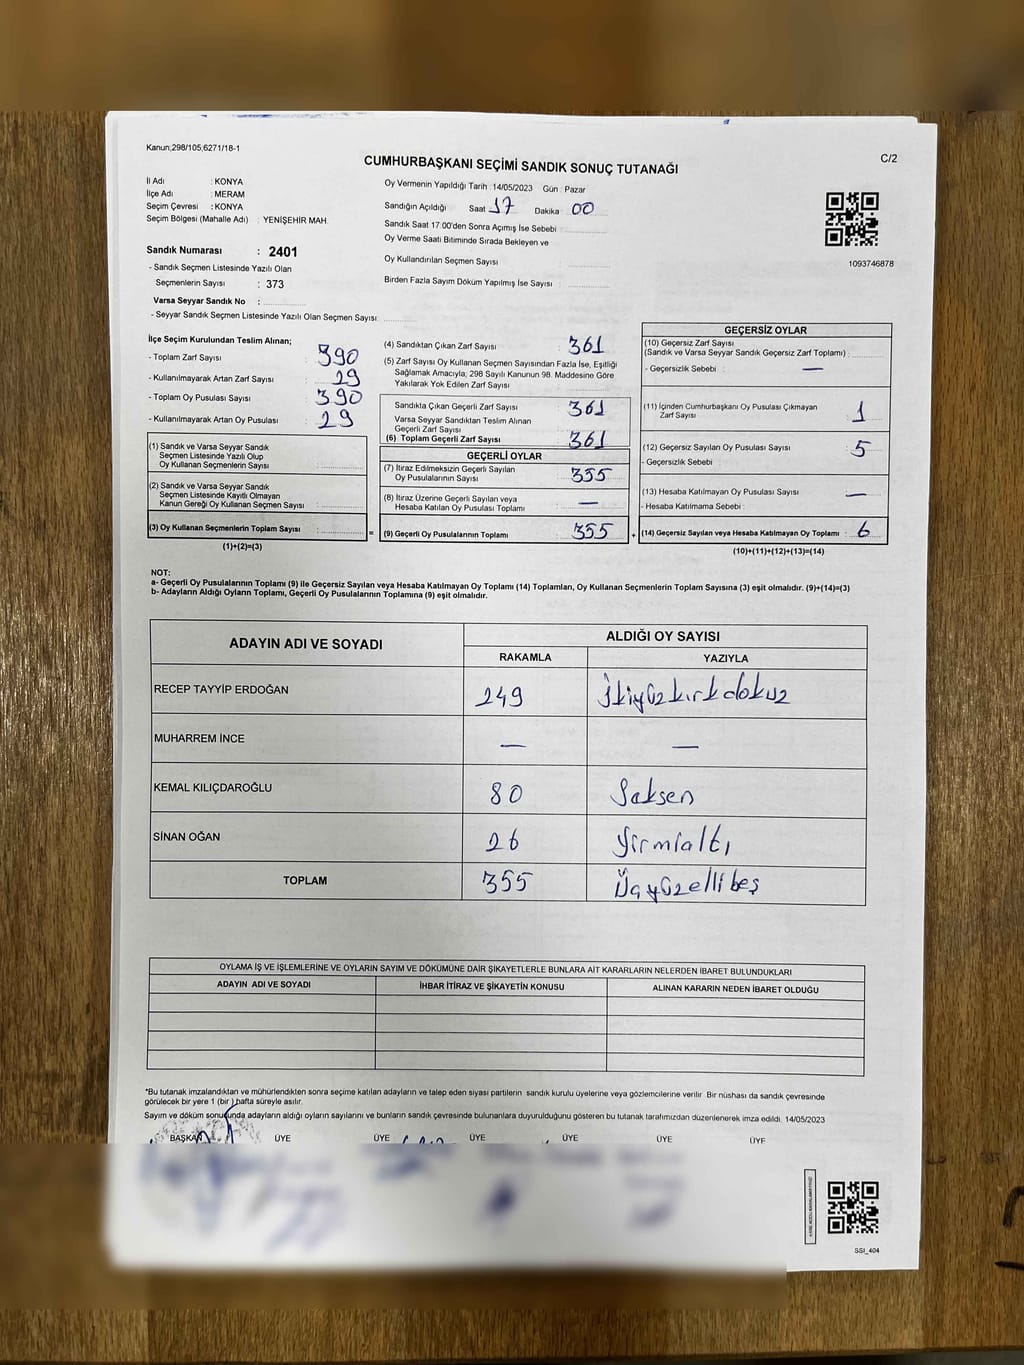 Kanun;298/105,6271/18-1
C/2
CUMHURBAŞKANI SEÇİMİ SANDIK SONUÇ TUTANAĞI
İl Adı : KONYA
İlçe Adı : MERAM
Seçim Çevresi : KONYA
Seçim Bölgesi (Mahalle Adı) : YENİŞEHİR MAH.
Sandık Numarası : 2401
- Sandık Seçmen Listesinde Yazılı Olan
Seçmenlerin Sayısı : 373
Varsa Seyyar Sandık No :
- Seyyar Sandık Seçmen Listesinde Yazılı Olan Seçmen Sayısı:
Oy Vermenin Yapıldığı Tarih :14/05/2023 Gün : Pazar
Sandığın Açıldığı Saat : 17 Dakika : 00
Sandık Saat 17.00'den Sonra Açımış İse Sebebi :
Oy Verme Saati Bitiminde Sırada Bekleyen ve
Oy Kullandırılan Seçmen Sayısı :
Birden Fazla Sayım Döküm Yapılmış İse Sayısı :
1093746878
İlçe Seçim Kurulundan Teslim Alınan;
- Toplam Zarf Sayısı : 390
- Kullanılmayarak Artan Zarf Sayısı : 29
- Toplam Oy Pusulası Sayısı : 390
- Kullanılmayarak Artan Oy Pusulası : 29
(1) Sandık ve Varsa Seyyar Sandık
Seçmen Listesinde Yazılı Olup
Oy Kullanan Seçmenlerin Sayısı :
(2) Sandık ve Varsa Seyyar Sandık
Seçmen Listesinde Kayıtlı Olmayan
Kanun Gereği Oy Kullanan Seçmen Sayısı :
(3) Oy Kullanan Seçmenlerin Toplam Sayısı :
(1)+(2)=(3)
=
(4) Sandıktan Çıkan Zarf Sayısı : 361
(5) Zarf Sayısı Oy Kullanan Seçmen Sayısından Fazla İse, Eşitliği
Sağlamak Amacıyla; 298 Sayılı Kanunun 98. Maddesine Göre
Yakılarak Yok Edilen Zarf Sayısı :
Sandıkta Çıkan Geçerli Zarf Sayısı : 361
Varsa Seyyar Sandıktan Teslim Alınan
Geçerli Zarf Sayısı :
(6) Toplam Geçerli Zarf Sayısı : 361
GEÇERLİ OYLAR
(7) İtiraz Edilmeksizin Geçerli Sayılan
Oy Pusulalarının Sayısı : 355
(8) İtiraz Üzerine Geçerli Sayılan veya
Hesaba Katılan Oy Pusulası Toplamı : —
(9) Geçerli Oy Pusulalarının Toplamı : 355
+
GEÇERSİZ OYLAR
(10) Geçersiz Zarf Sayısı
(Sandık ve Varsa Seyyar Sandık Geçersiz Zarf Toplamı) :
- Geçersizlik Sebebi : —
(11) İçinden Cumhurbaşkanı Oy Pusulası Çıkmayan
Zarf Sayısı : 1
(12) Geçersiz Sayılan Oy Pusulası Sayısı : 5
- Geçersizlik Sebebi :
(13) Hesaba Katılmayan Oy Pusulası Sayısı : —
- Hesaba Katılmama Sebebi :
(14) Geçersiz Sayılan veya Hesaba Katılmayan Oy Toplamı : 6
(10)+(11)+(12)+(13)=(14)
NOT:
a- Geçerli Oy Pusulalarının Toplamı (9) ile Geçersiz Sayılan veya Hesaba Katılmayan Oy Toplamı (14) Toplamları, Oy Kullanan Seçmenlerin Toplam Sayısına (3) eşit olmalıdır. (9)+(14)=(3)
b- Adayların Aldığı Oyların Toplamı, Geçerli Oy Pusulalarının Toplamına (9) eşit olmalıdır.
ADAYIN ADI VE SOYADI
ALDIĞI OY SAYISI
RAKAMLA YAZIYLA
RECEP TAYYİP ERDOĞAN 249 İkiyüzkırkdokuz
MUHARREM İNCE — —
KEMAL KILIÇDAROĞLU 80 Seksen
SİNAN OĞAN 26 Yirmialtı
TOPLAM 355 Üçyüzellibeş
OYLAMA İŞ VE İŞLEMLERİNE VE OYLARIN SAYIM VE DÖKÜMÜNE DAİR ŞİKAYETLERLE BUNLARA AİT KARARLARIN NELERDEN İBARET BULUNDUKLARI
ADAYIN ADI VE SOYADI İHBAR İTİRAZ VE ŞİKAYETİN KONUSU ALINAN KARARIN NEDEN İBARET OLDUĞU
*Bu tutanak imzalandıktan ve mühürlendikten sonra seçime katılan adayların ve talep eden siyasi partilerin sandık kurulu üyelerine veya gözlemcilerine verilir. Bir nüshası da sandık çevresinde
görülecek bir yere 1 (bir ) hafta süreyle asılır.
Sayım ve döküm sonucunda adayların aldığı oyların sayılarını ve bunların sandık çevresinde bulunanlara duyurulduğunu gösteren bu tutanak tarafımızdan düzenlenerek imza edildi. 14/05/2023
BAŞKAN ÜYE ÜYE ÜYE ÜYE ÜYE ÜYE
SSI_404